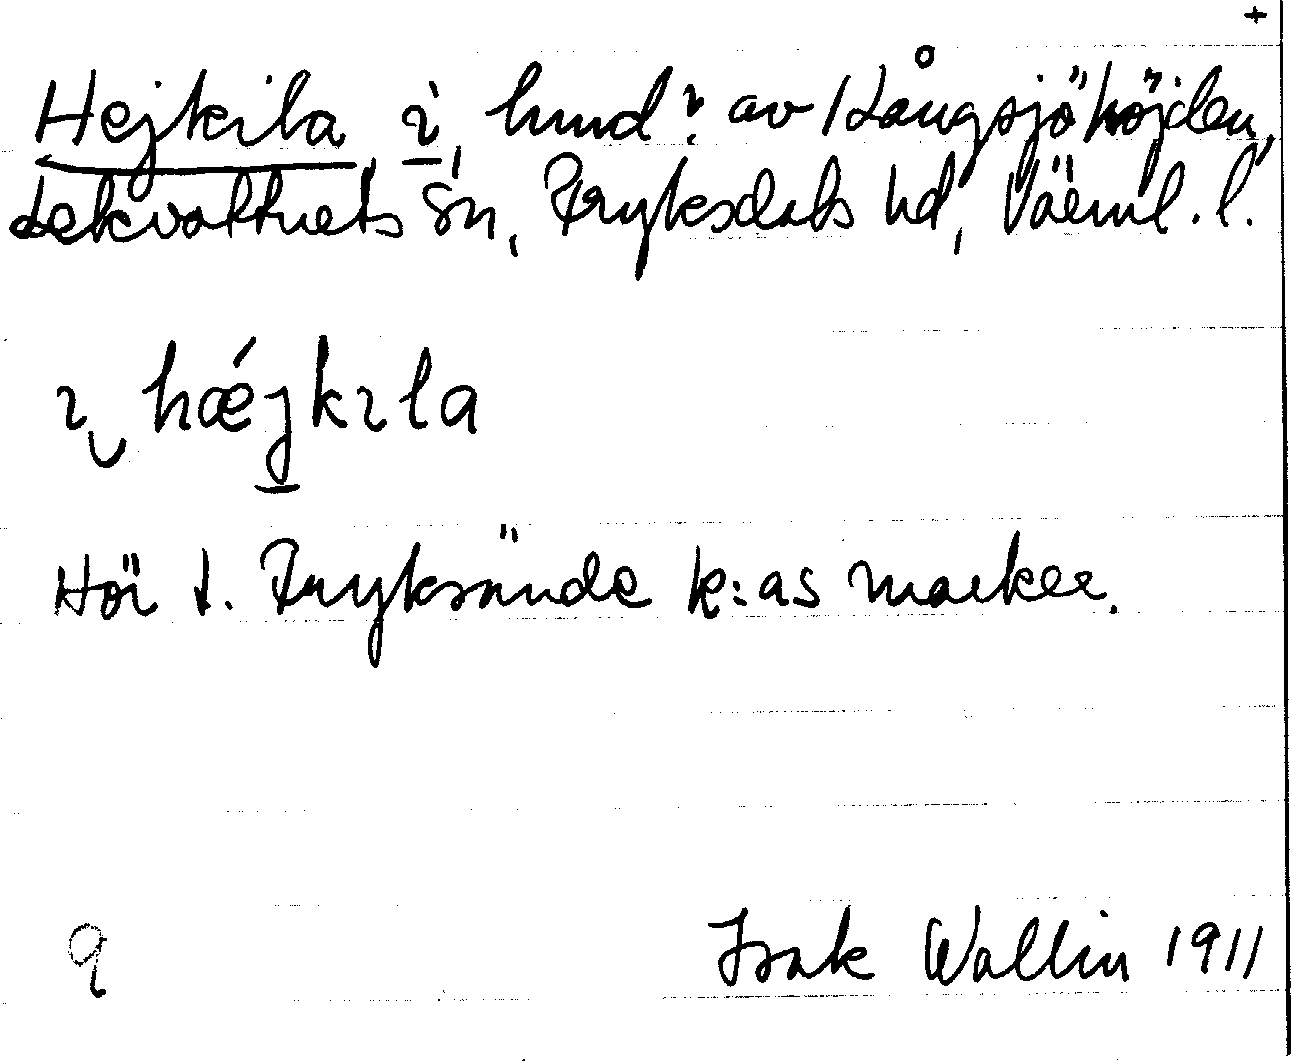 +
Hejkila, i, hmd? av Kångsjöhöjden,
Lekvattnets sn, Fryksdals hd, Värml. l.
ɩ hǽjkɩla
Hör t. Fryksände k:as marker.
q
Isak Wallin 1911